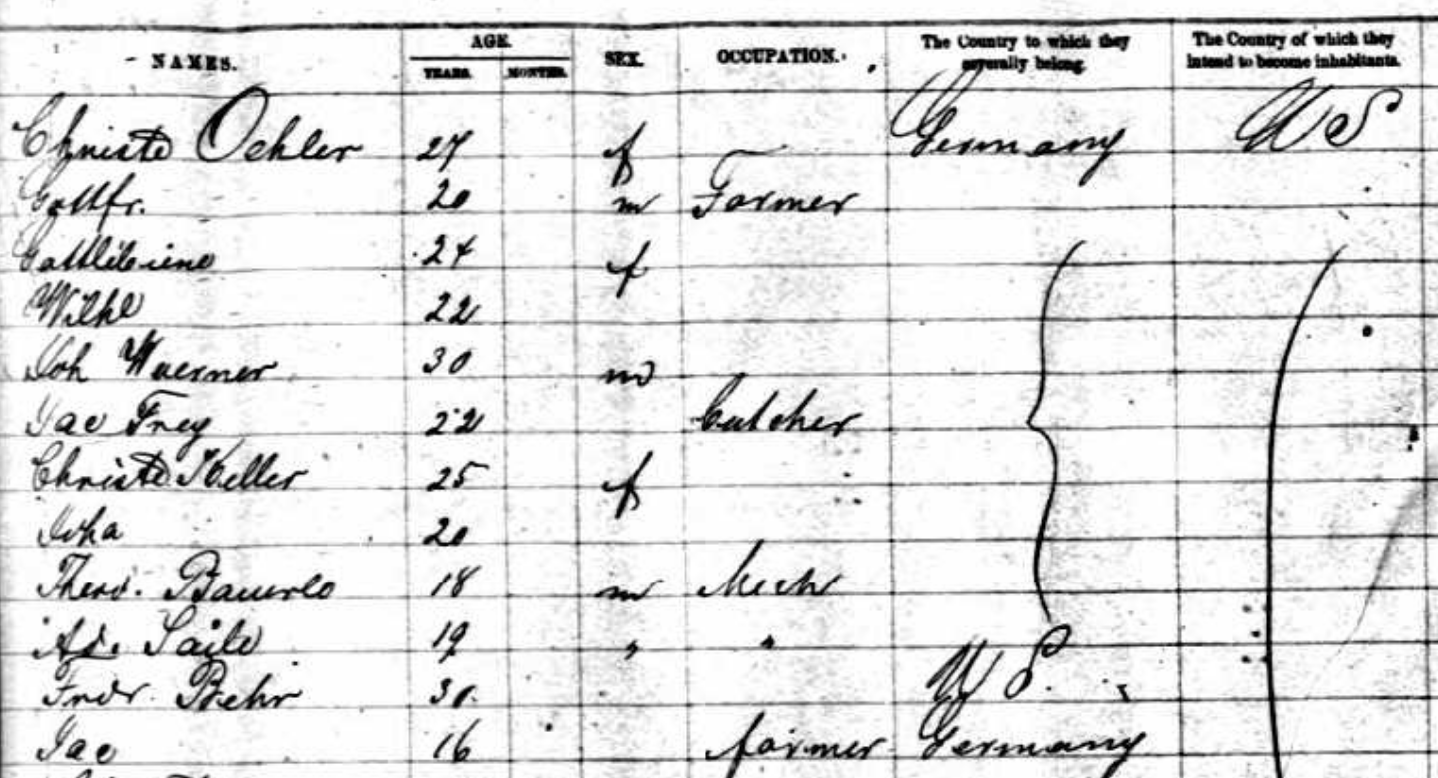 NAMES. AGE. YEARS. MONTHS. SEX. OCCUPATION. The Country to which they severally belong. The Country of which they intend to become inhabitants.
Christe Oehler 27 f Germany U S
Gottfr. 20 m Farmer
Gottliebiene 24 f
Wilhe 22
Joh Wuerner 30 m
Jac Frey 22 Butcher
Christe Keller 25 f
Joha 20
Theod. Bauerle 18 m Mech
Ad. Saile 19 " "
Fridr. Behr 30. U S.
Jac 16 farmer Germany